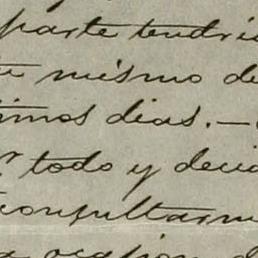 parte tendri
mismo de
timos dias.—
todo y deci
consultarm
ocasion d